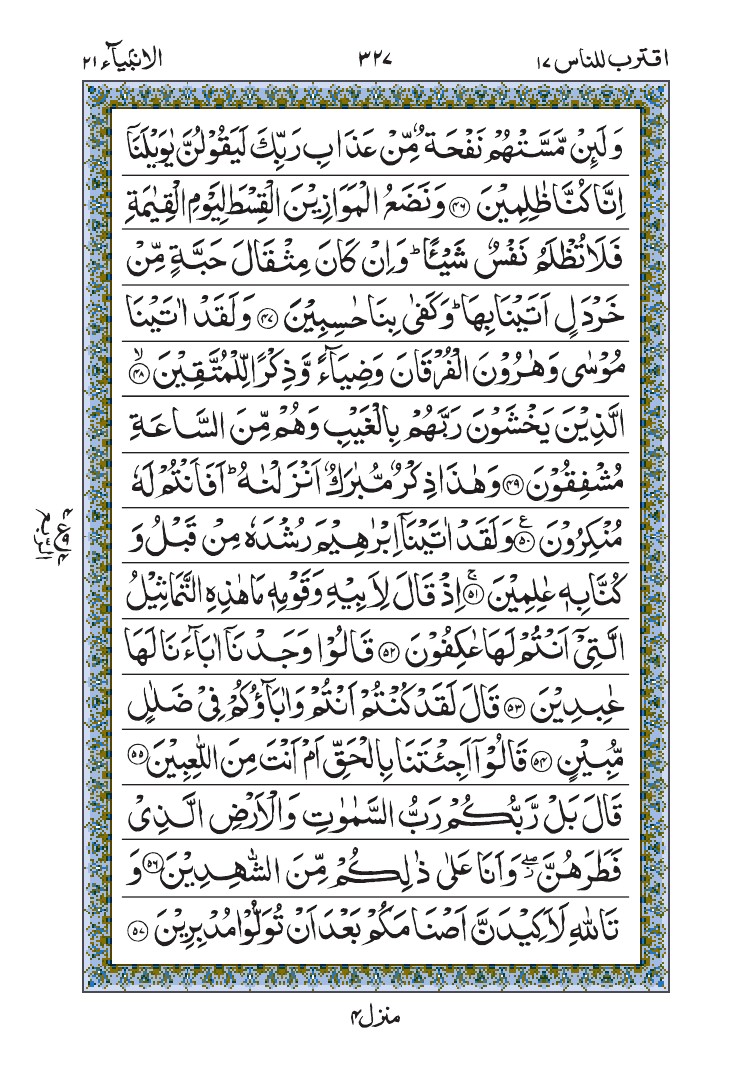 اقترب للناس ١٧ ٣٢٧ الانبيآء ٢١
وَلَئِنْ مَّسَّتْهُمْ نَفْحَةٌ مِّنْ عَذَابِ رَبِّكَ لَيَقُوْلُنَّ يٰوَيْلَنَاۤ
اِنَّا كُنَّا ظٰلِمِيْنَ ﴿۴۶﴾ وَنَضَعُ الْمَوَازِيْنَ الْقِسْطَ لِيَوْمِ الْقِيٰمَةِ
فَلَا تُظْلَمُ نَفْسٌ شَيْـًٔا ؕ وَاِنْ كَانَ مِثْقَالَ حَبَّةٍ مِّنْ
خَرْدَلٍ اَتَيْنَا بِهَا ؕ وَكَفٰى بِنَا حٰسِبِيْنَ ﴿۴۷﴾ وَلَقَدْ اٰتَيْنَا
مُوْسٰى وَهٰرُوْنَ الْفُرْقَانَ وَضِيَآءً وَّذِكْرًا لِّلْمُتَّقِيْنَ ۙ﴿۴۸﴾
الَّذِيْنَ يَخْشَوْنَ رَبَّهُمْ بِالْغَيْبِ وَهُمْ مِّنَ السَّاعَةِ
مُشْفِقُوْنَ ﴿۴۹﴾ وَهٰذَا ذِكْرٌ مُّبٰرَكٌ اَنْزَلْنٰهُ ؕ اَفَاَنْتُمْ لَهٗ
مُنْكِرُوْنَ ﴿۵۰﴾ ع وَلَقَدْ اٰتَيْنَاۤ اِبْرٰهِيْمَ رُشْدَهٗ مِنْ قَبْلُ وَ
كُنَّا بِهٖ عٰلِمِيْنَ ۚ﴿۵۱﴾ اِذْ قَالَ لِاَبِيْهِ وَقَوْمِهٖ مَا هٰذِهِ التَّمَاثِيْلُ
الَّتِيْۤ اَنْتُمْ لَهَا عٰكِفُوْنَ ﴿۵۲﴾ قَالُوْا وَجَدْنَاۤ اٰبَآءَنَا لَهَا
عٰبِدِيْنَ ﴿۵۳﴾ قَالَ لَقَدْ كُنْتُمْ اَنْتُمْ وَاٰبَآؤُكُمْ فِيْ ضَلٰلٍ
مُّبِيْنٍ ﴿۵۴﴾ قَالُوْۤا اَجِئْتَنَا بِالْحَقِّ اَمْ اَنْتَ مِنَ اللّٰعِبِيْنَ ﴿۵۵﴾
قَالَ بَلْ رَّبُّكُمْ رَبُّ السَّمٰوٰتِ وَالْاَرْضِ الَّذِيْ
فَطَرَهُنَّ ۖؗ وَاَنَا عَلٰى ذٰلِكُمْ مِّنَ الشّٰهِدِيْنَ ﴿۵۶﴾ وَ
تَاللّٰهِ لَاَكِيْدَنَّ اَصْنَامَكُمْ بَعْدَ اَنْ تُوَلُّوْا مُدْبِرِيْنَ ﴿۵۷﴾
الربع
منزل ۴